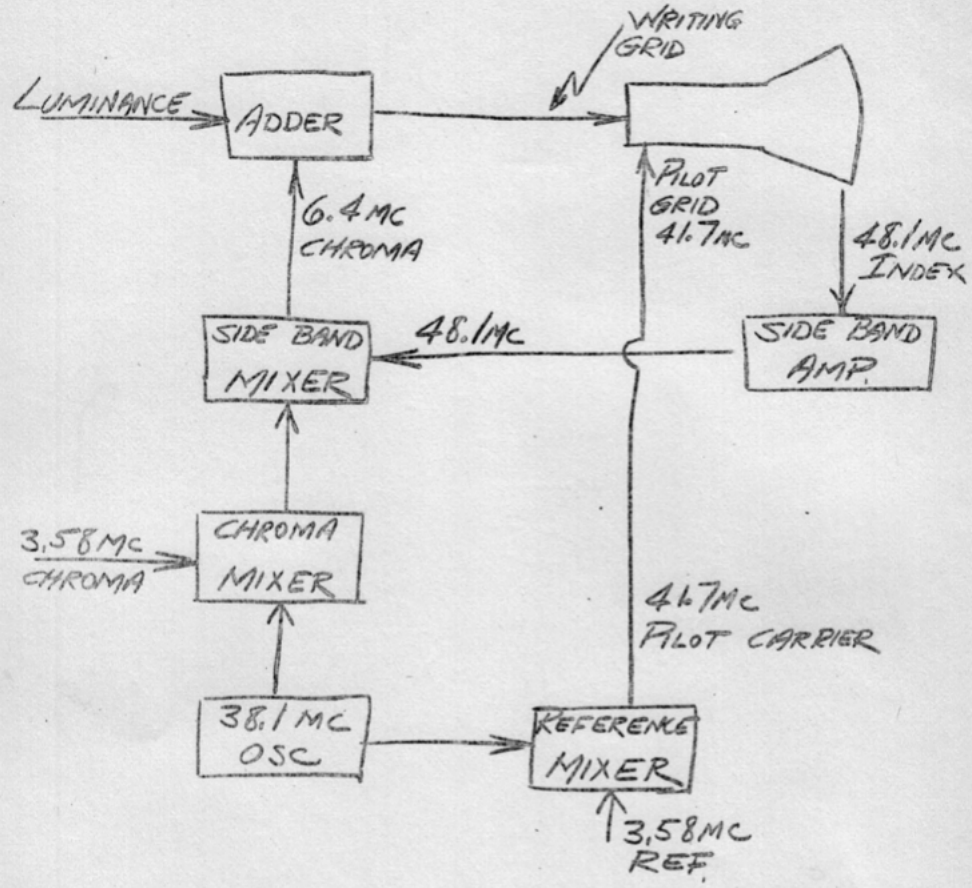 WRITING
GRID
LUMINANCE
ADDER
PILOT
GRID
41.7MC
6.4MC
CHROMA
48.1MC
INDEX
SIDE BAND
MIXER
48.1MC
SIDE BAND
AMP.
3.58MC
CHROMA
CHROMA
MIXER
41.7MC
PILOT CARRIER
38.1MC
OSC
REFERENCE
MIXER
3.58MC
REF.